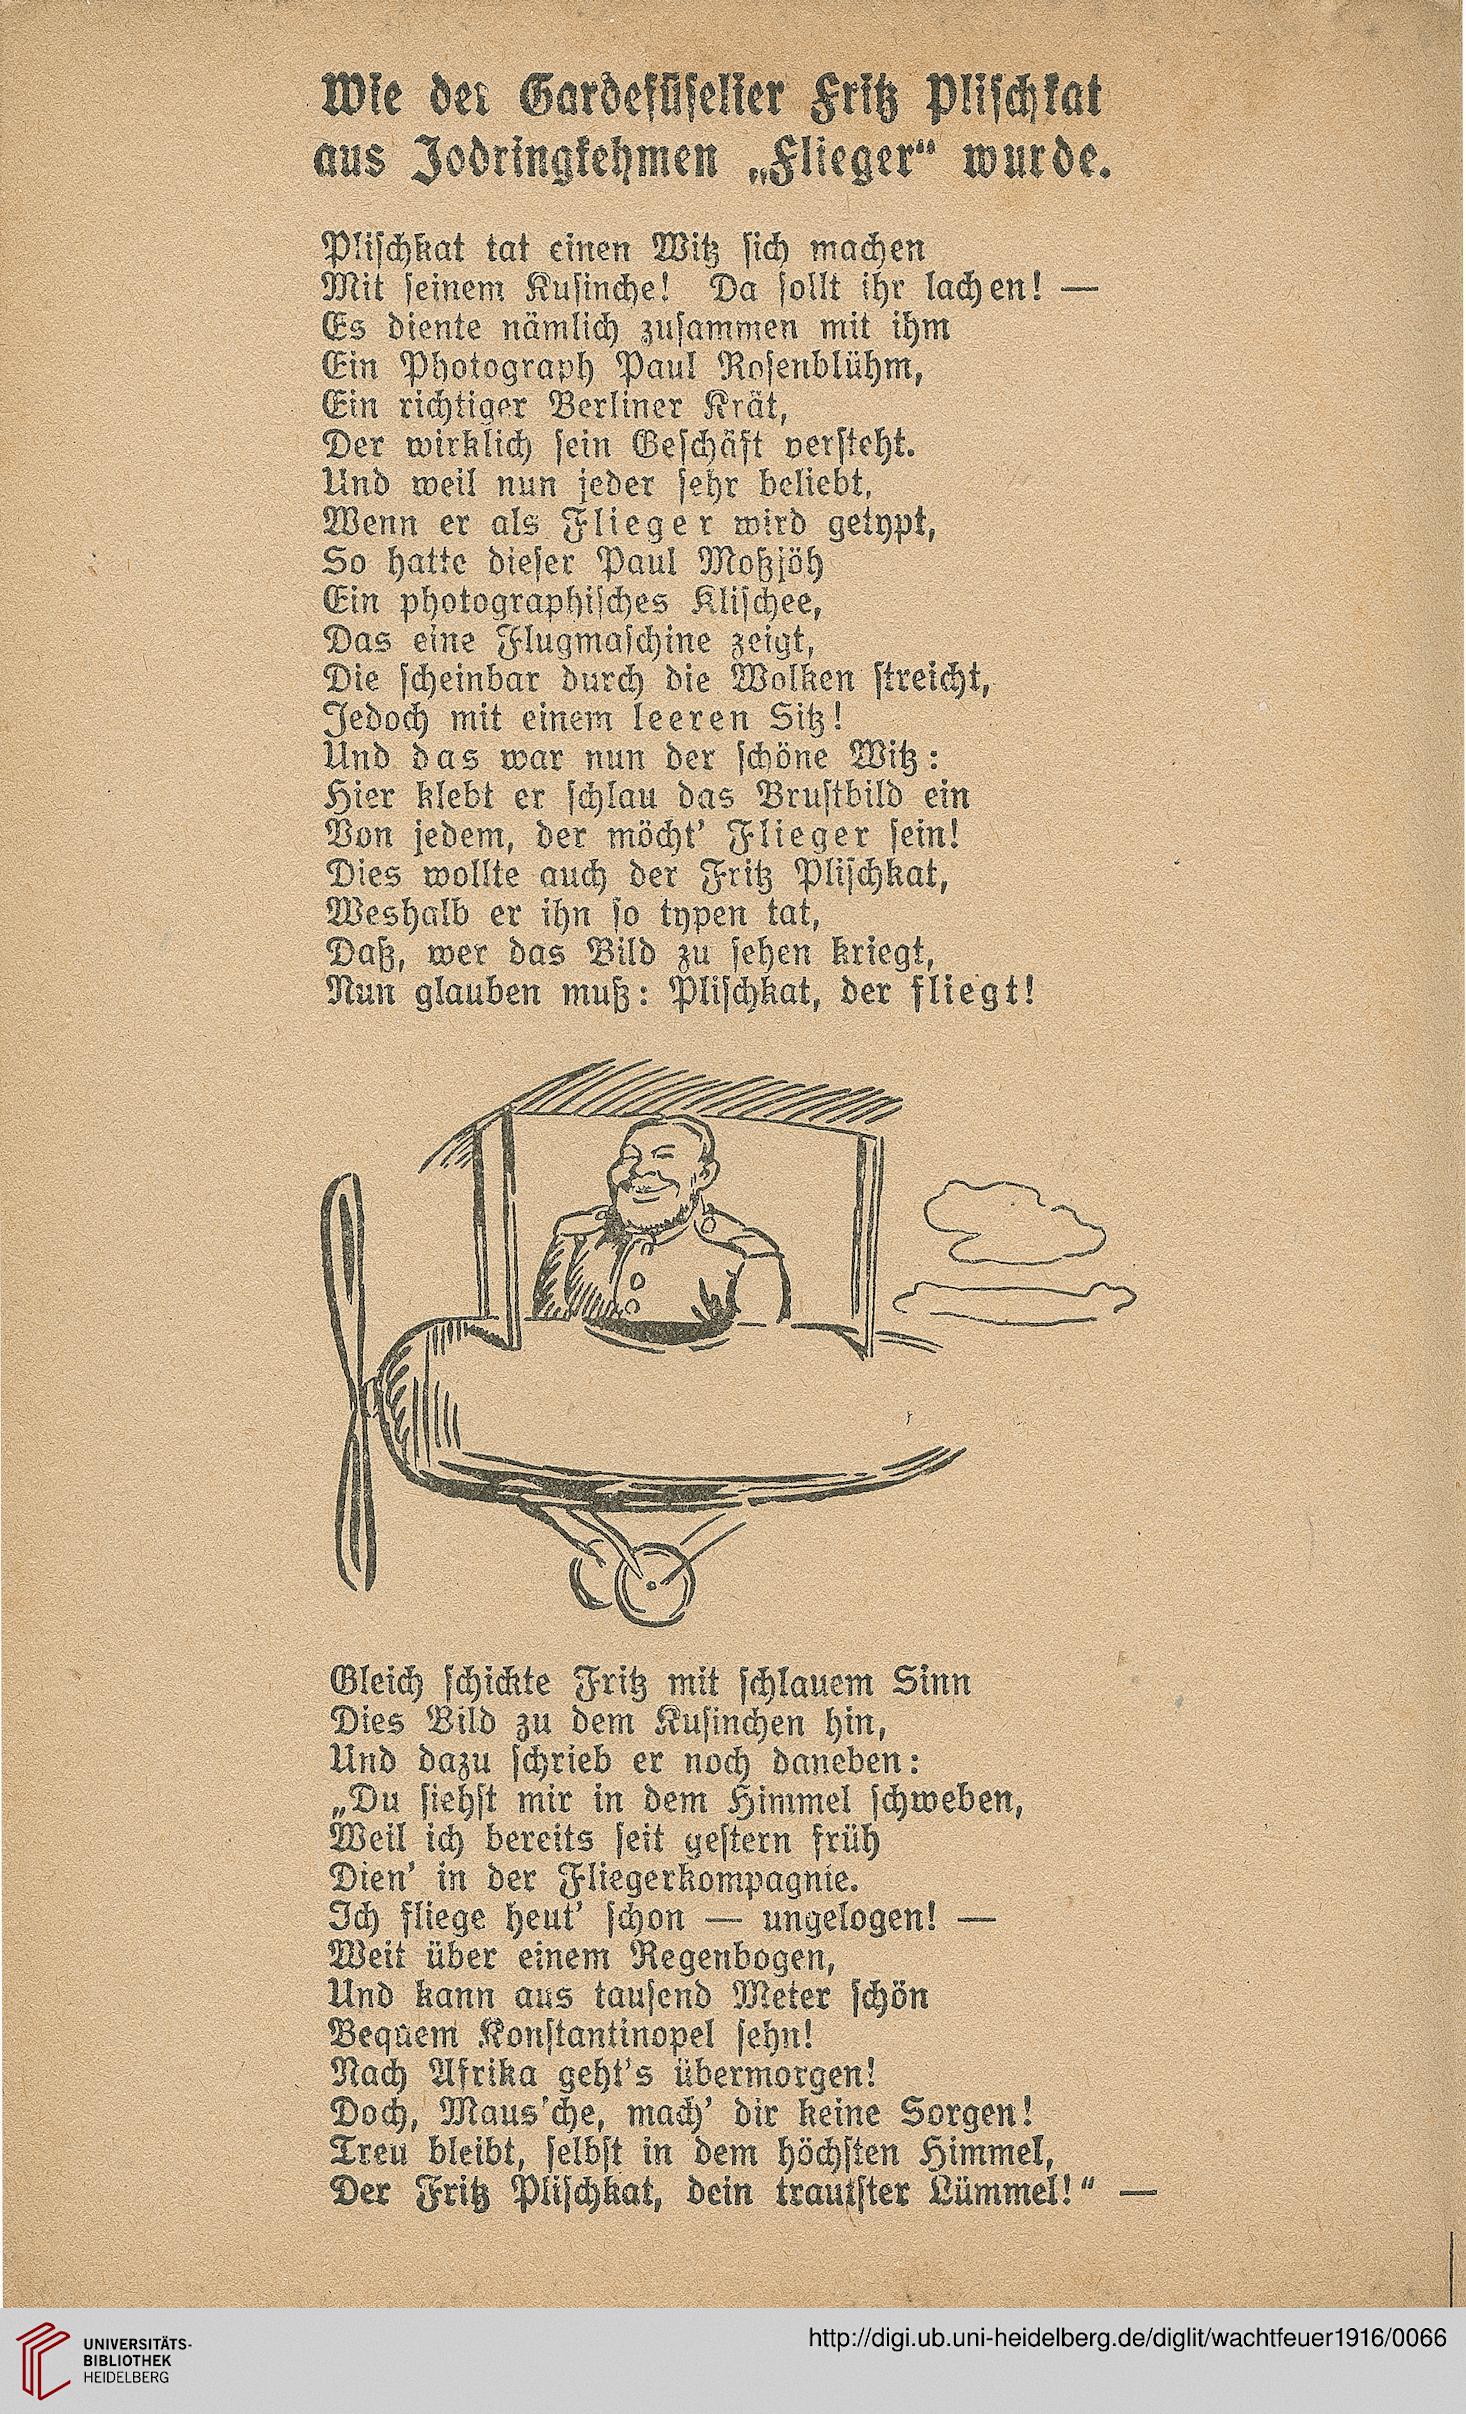 Wie der Gardefüselier Fritz Plischkat
aus Jodringkehmen „Flieger“ wurde.
Plischkat tat einen Witz sich machen
Mit seinem Kusinche! Da sollt ihr lachen! —
Es diente nämlich zusammen mit ihm
Ein Photograph Paul Rosenblühm,
Ein richtiger Berliner Krät,
Der wirklich sein Geschäft versteht.
Und weil nun jeder sehr beliebt,
Wenn er als Flieger wird getypt,
So hatte dieser Paul Moßjöh
Ein photographisches Klischee,
Das eine Flugmaschine zeigt,
Die scheinbar durch die Wolken streicht,
Jedoch mit einem leeren Sitz!
Und das war nun der schöne Witz:
Hier klebt er schlau das Brustbild ein
Von jedem, der möcht’ Flieger sein!
Dies wollte auch der Fritz Plischkat,
Weshalb er ihn so typen tat,
Daß, wer das Bild zu sehen kriegt,
Nun glauben muß: Plischkat, der fliegt!
Gleich schickte Fritz mit schlauem Sinn
Dies Bild zu dem Kusinchen hin,
Und dazu schrieb er noch daneben:
„Du siehst mir in dem Himmel schweben,
Weil ich bereits seit gestern früh
Dien’ in der Fliegerkompagnie.
Ich fliege heut’ schon — ungelogen! —
Weit über einem Regenbogen,
Und kann aus tausend Meter schön
Bequem Konstantinopel sehn!
Nach Afrika geht’s übermorgen!
Doch, Maus’che, mach’ dir keine Sorgen!
Treu bleibt, selbst in dem höchsten Himmel,
Der Fritz Plischkat, dein trautster Lümmel!“ —
UNIVERSITÄTS-
BIBLIOTHEK
HEIDELBERG
http://digi.ub.uni-heidelberg.de/diglit/wachtfeuer1916/0066